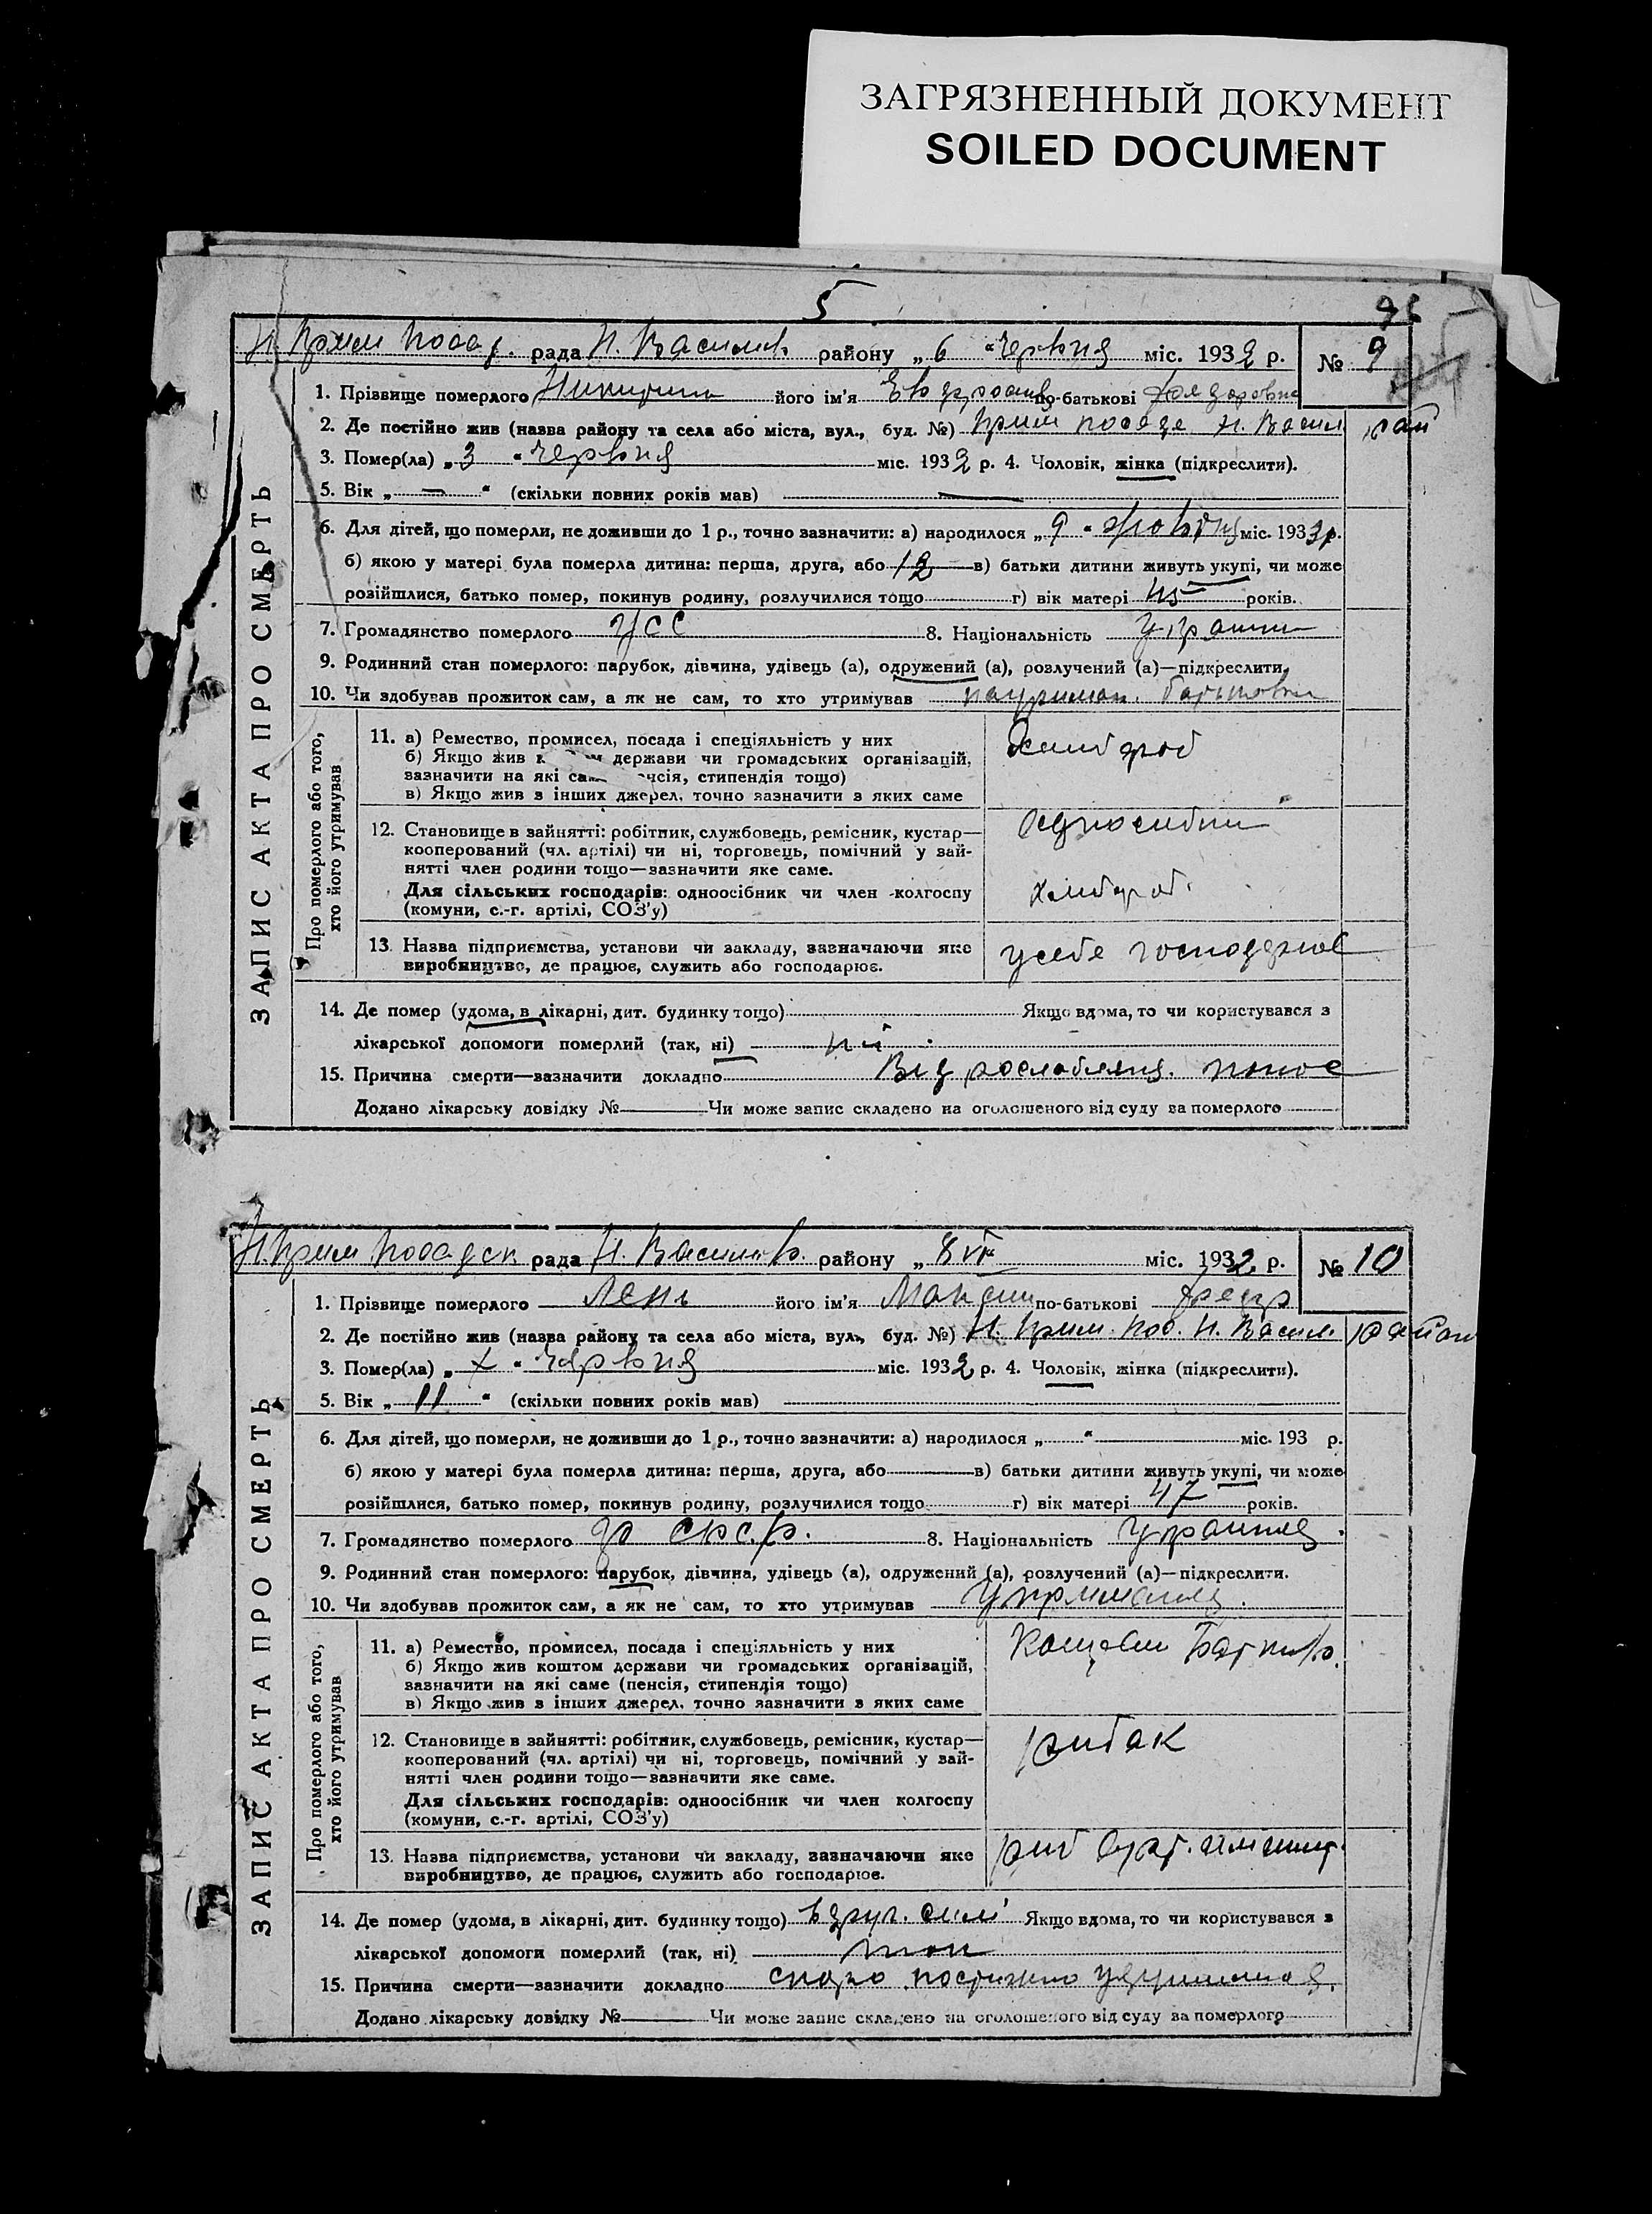 ЗАГРЯЗНЕННЫЙ ДОКУМЕНТ
SOILED DOCUMENT
5
ЗАПИС АКТА ПРО СМЕРТЬ
рада Н. Василів району „ 6 “ червня міс. 1932 р. № 9
1. Прізвище померлого його ім'я по-батькові
2. Де постійно жив (назва району та села або міста, вул., буд. №) Н. Васил рай
3. Помер(ла) „ 3 “ червня міс. 1932 р. 4. Чоловік, жінка (підкреслити).
5. Вік „ — “ (скільки повних років мав) —
6. Для дітей, що померли, не доживши до 1 р., точно зазначити: а) народилося „ 9 “ міс. 193 р.
б) якою у матері була померла дитина: перша, друга, або 12 в) батьки дитини живуть укупі, чи може
розійшлися, батько помер, покинув родину, розлучилися тощо г) вік матері 45 років.
7. Громадянство померлого УСС 8. Національність
9. Родинний стан померлого: парубок, дівчина, удівець (а), одружений (а), розлучений (а)—підкреслити.
10. Чи здобував прожиток сам, а як не сам, то хто утримував
Про померлого або того,
хто його утримував
11. а) Ремество, промисел, посада і спеціяльність у них
б) Якщо жив держави чи громадських організацій,
зазначити на які стипендія тощо)
в) Якщо жив з інших джерел, точно зазначити з яких саме
Хлибороб
12. Становище в зайнятті: робітник, службовець, ремісник, кустар—
кооперований (чл. артілі) чи ні, торговець, помічний у зай-
нятті член родини тощо—зазначити яке саме.
Для сільських господарів: одноосібник чи член колгоспу
(комуни, с.-г. артілі, СОЗ'у)
хлибороб.
13. Назва підприємства, установи чи закладу, зазначаючи яке
виробництво, де працює, служить або господарює.
усебе
14. Де помер (удома, в лікарні, дит. будинку тощо) Якщо вдома, то чи користувався з
лікарської допомоги померлий (так, ні) ні
15. Причина смерти—зазначити докладно Від понос
Додано лікарську довідку № Чи може запис складено на оголошеного від суду за померлого
ЗАПИС АКТА ПРО СМЕРТЬ
рада Н. Василів. району „ 8 VI міс. 1932 р. № 10
1. Прізвище померлого Лень його ім'я Максим по-батькові
2. Де постійно жив (назва району та села або міста, вул., буд. №) Н. Крим. пос. Н. Васил.
3. Помер(ла) „ “ червня міс. 1932 р. 4. Чоловік, жінка (підкреслити).
5. Вік „ 11 “ (скільки повних років мав)
6. Для дітей, що померли, не доживши до 1 р., точно зазначити: а) народилося „ “ міс. 193 р.
б) якою у матері була померла дитина: перша, друга, або в) батьки дитини живуть укупі, чи може
розійшлися, батько помер, покинув родину, розлучилися тощо г) вік матері 47 років.
7. Громадянство померлого 8. Національність
9. Родинний стан померлого: парубок, дівчина, удівець (а), одружений (а), розлучений (а)—підкреслити.
10. Чи здобував прожиток сам, а як не сам, то хто утримував
Про померлого або того,
хто його утримував
11. а) Ремество, промисел, посада і спеціяльність у них
б) Якщо жив коштом держави чи громадських організацій,
зазначити на які саме (пенсія, стипендія тощо)
в) Якщо жив з інших джерел, точно зазначити з яких саме
12. Становище в зайнятті: робітник, службовець, ремісник, кустар—
кооперований (чл. артілі) чи ні, торговець, помічний у зай-
нятті член родини тощо—зазначити яке саме.
Для сільських господарів: одноосібник чи член колгоспу
(комуни, с.-г. артілі, СОЗ'у)
рибак
13. Назва підприємства, установи чи закладу, зазначаючи яке
виробництво, де працює, служить або господарює.
риб
14. Де помер (удома, в лікарні, дит. будинку тощо) Якщо вдома, то чи користувався з
лікарської допомоги померлий (так, ні)
15. Причина смерти—зазначити докладно
Додано лікарську довідку № Чи може запис складено на оголошеного від суду за померлого